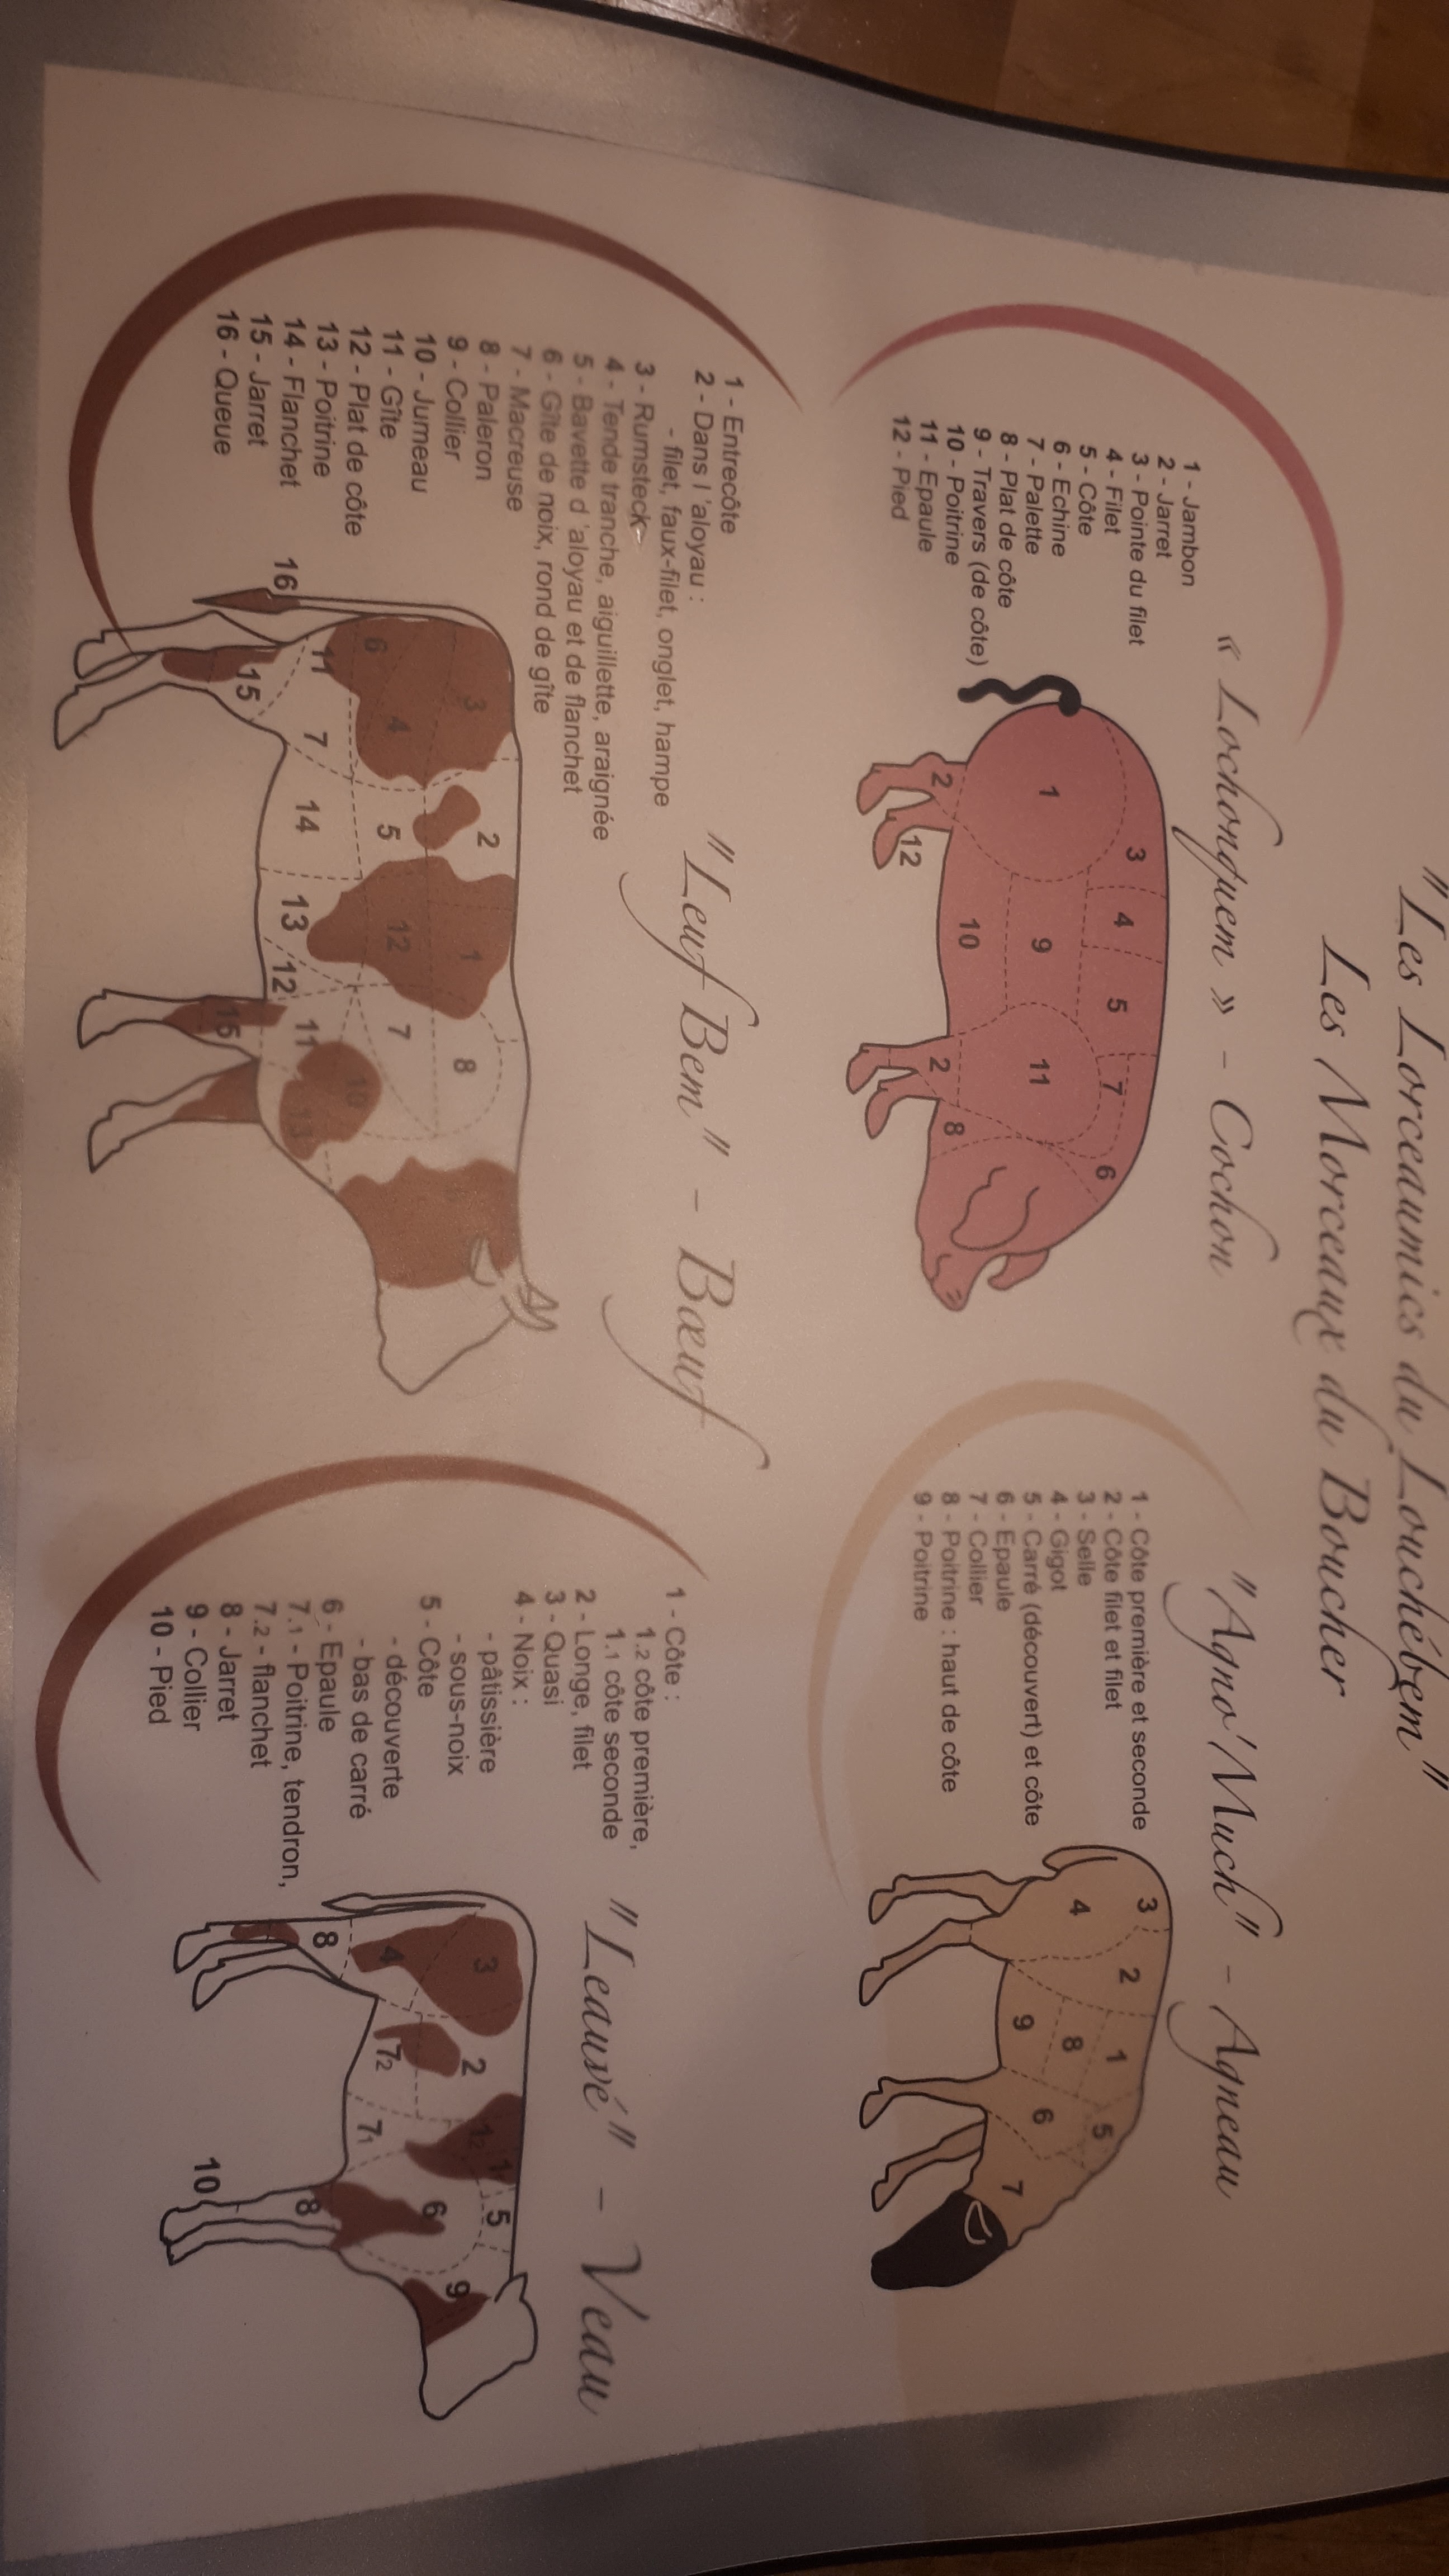 "Les Lorceaumics du Louchébem"
Les Morceaux du Boucher
« Lochonquem » - Cochon
1 - Jambon
2 - Jarret
3 - Pointe du filet
4 - Filet
5 - Côte
6 - Echine
7 - Palette
8 - Plat de côte
9 - Travers (de côte)
10 - Poitrine
11 - Epaule
12 - Pied
1
2
3
4
5
6
7
8
9
10
11
2
12
"Agno'Much" - Agneau
1 - Côte première et seconde
2 - Côte filet et filet
3 - Selle
4 - Gigot
5 - Carré (découvert) et côte
6 - Epaule
7 - Collier
8 - Poitrine : haut de côte
9 - Poitrine
3
4
2
1
8
9
5
6
7
"Leuf Bem" - Bœuf
1 - Entrecôte
2 - Dans l 'aloyau :
- filet, faux-filet, onglet, hampe
3 - Rumsteck
4 - Tende tranche, aiguillette, araignée
5 - Bavette d 'aloyau et de flanchet
6 - Gîte de noix, rond de gîte
7 - Macreuse
8 - Paleron
9 - Collier
10 - Jumeau
11 - Gîte
12 - Plat de côte
13 - Poitrine
14 - Flanchet
15 - Jarret
16 - Queue
3
2
1
8
6
4
5
12
7
10
11
7
14
13
12
11
13
16
15
15
"Leauvé" - Veau
1 - Côte :
1.2 côte première,
1.1 côte seconde
2 - Longe, filet
3 - Quasi
4 - Noix :
- pâtissière
- sous-noix
5 - Côte
- découverte
- bas de carré
6 - Epaule
7.1 - Poitrine, tendron,
7.2 - flanchet
8 - Jarret
9 - Collier
10 - Pied
3
2
12
11
5
4
72
71
6
9
8
8
10